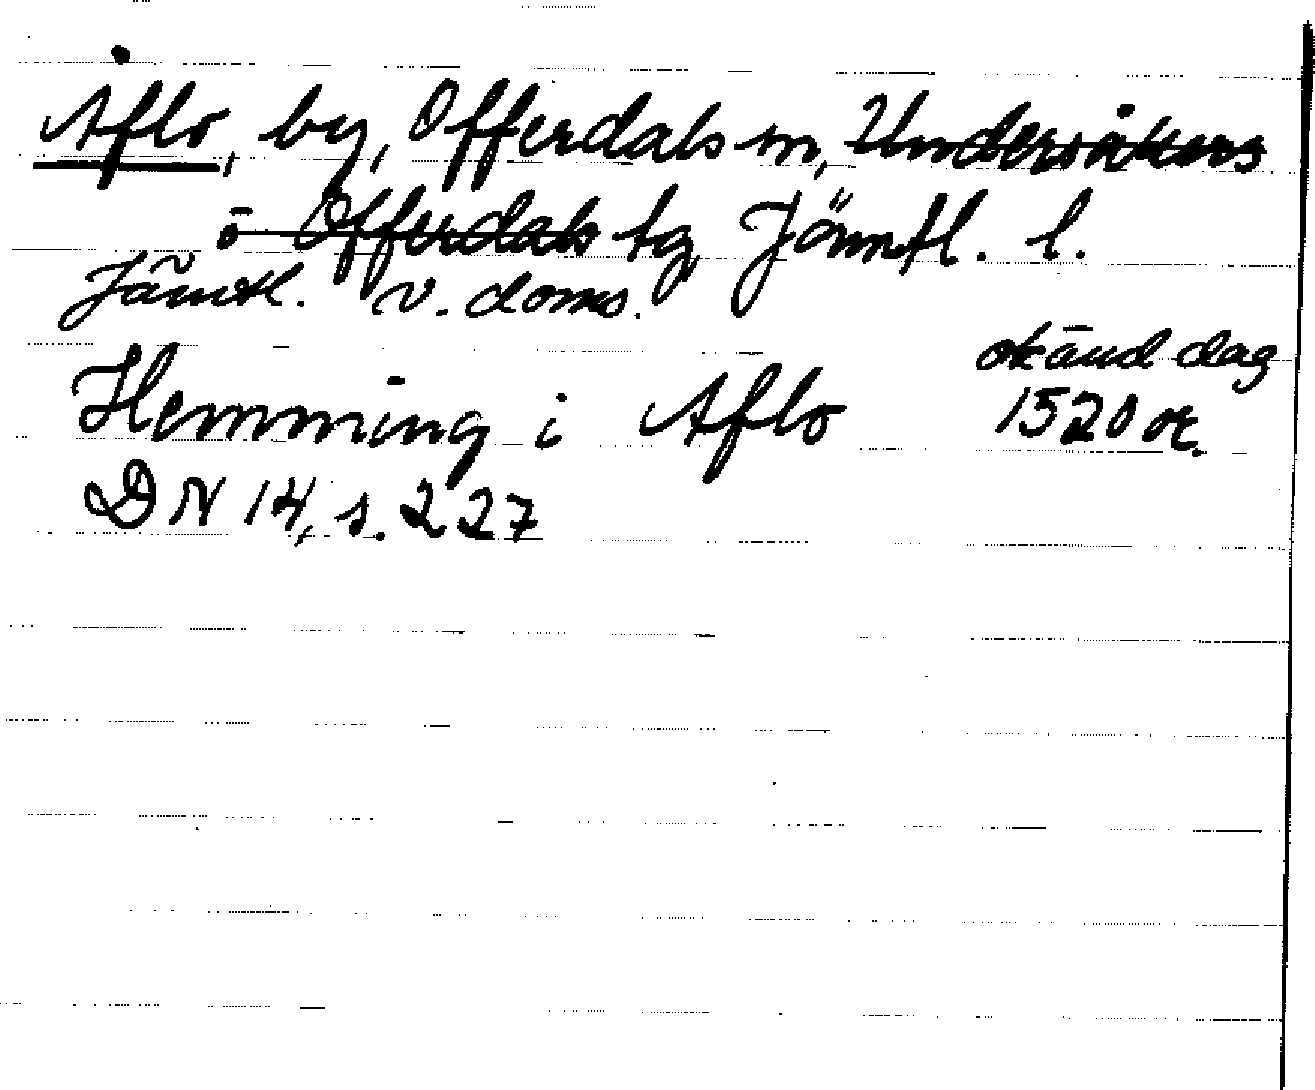 Åflo, by, Offerdals sn, Undersåkers
o Offerdals tg Jämtl. l.
Jämtl. v. doms.
okänd dag
Hemming i Aflo 1520 or.
DN 14, s. 227